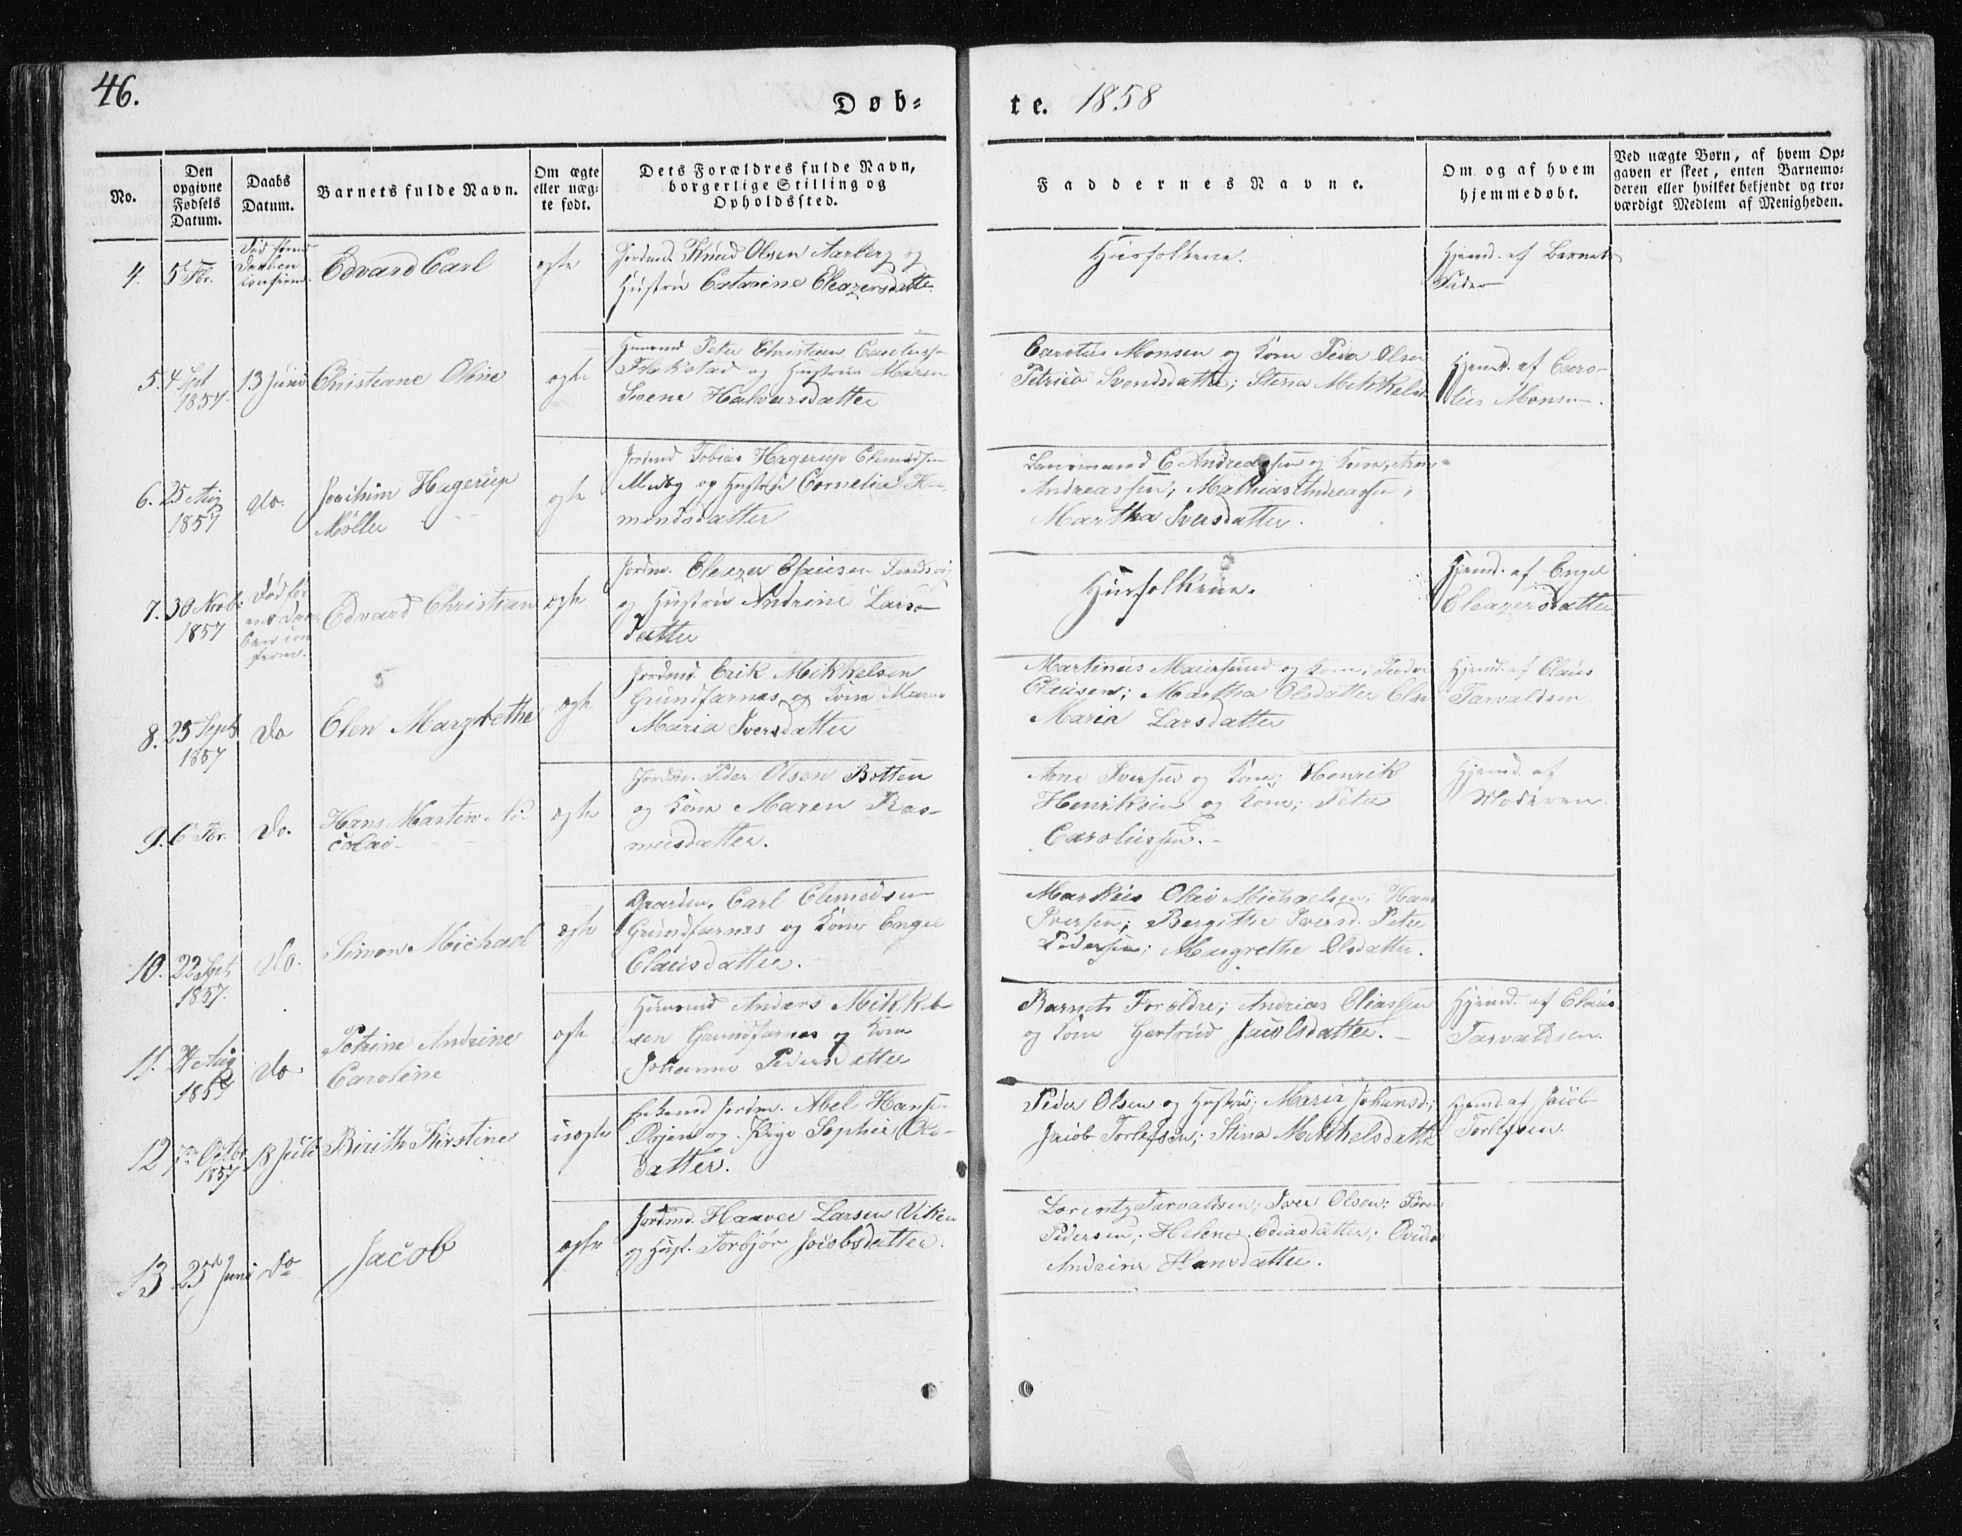 46.
Døb-
te. 1858
No.
Den opgivne Fødsels Datum.
Daabs Datum.
Barnets fulde Navn.
Om ægte eller uægte født.
Dets Forældres fulde Navn, borgerlige Stilling og Opholdssted.
Faddernes Navne.
Om og af hvem hjemmedøbt.
Ved uægte Børn, af hvem Opgaven er skeet, enten Barnemoderen eller hvilket bekjendt og troværdigt Medlem af Menigheden.
4.
Edvard Carl
ægte
Knud Olsen Aarberg og
Hustrü Catrine Eleazersdatte.
Hüsfolkene.
Hjemd. af Barnets
Fader
5. 4 Sept
1857.
13 Juni
Christiane Oline
ægte
Peter Christian
Flakstad og Hustrue Maren
Halvorsdatter
Monsen og Kone Peder Olsen
Svendsdatter; Stena Mikkelsd.
Hjemd. af Caro-
lüs Monsen.
6. 25 Aug
1857
do.
Joachim Hagerup
Möller
ægte
Jordmd Tobias Hagerup Clemedsen
og Hustrü Cornelia Ha-
mondsdatter
Lensmand C Andreassen og Kone,
Andreassen; Mathias Andreassen;
Martha Iversdatter.
7. 30 Novb.
1857
Død for
end Daa-
ben
Edvard Christian
ægte
Jordm. Eleazer Clausen
og Hustrü Andrine Lars-
datter
Hüsfolkene.
Hjemd. af Engel
Eleazersdatter
8. 25 Sept
1857
do
Elen Margrethe
ægte
Jordmd. Erik Mikkelsen
Grundfarnes og Kone Maren
Maria Iversdatter
Martinus og Kone; Peder
Clausen; Martha Olsdatter Elen
Maria Larsdatter
Hjemd. af Claus
Tarvaldsen
9. 6
do.
Hans Martin Ni-
colai
ægte
Jordm. Peder Olsen Botten
og Kone Maren Ras-
musdatter.
Arne Iversen og Kone; Henrik
Henriksen og Kone; Peter
Carolussen.
Hjemd. af
Moderen.
10. 22 Sept
1857.
do.
Simon Michael
ægte
Gaardm. Carl Clemedsen
Grundfarnes og Kone Engel
Clausdatter.
Markus Michaelsen; Hans
Iversen; Bergithe Iversd. Peter
Pedersen; Margrethe Olsdatter.
11. 24 Aug
1857
do
Petrine Andrine
Caroline
ægte
Husmd Anders Mikkel-
sen Grundfarnes og Kone
Johanne Pedersdatter
Barnets Forældre; Andreas Eliassen
og Kone Gertrud Jacobsdatter.
Hjemd. af Claus
Tarvaldsen.
12 Octbr.
1857
18 Juli
Birith Kirstine
uægte
Jordm. Abel Hans-
og Pige Sophie Ole-
datter.
Peder Olsen og Hustrü; Maria Johansd;
Jacob Torlefsen; Stina Mikkelsdatter
Hjemd. af Jacob
Torlefsen.
13 25d Juni
do
Jacob
ægte
Jordmd. Haavar Larsen Viken
og Hust. Torbjør Jacobsdatter.
Lorentz Tarvaldsen; Iver Olsen; Søren
Pedersen; Helene Eliasdatter;
Andrine Hansdatter.